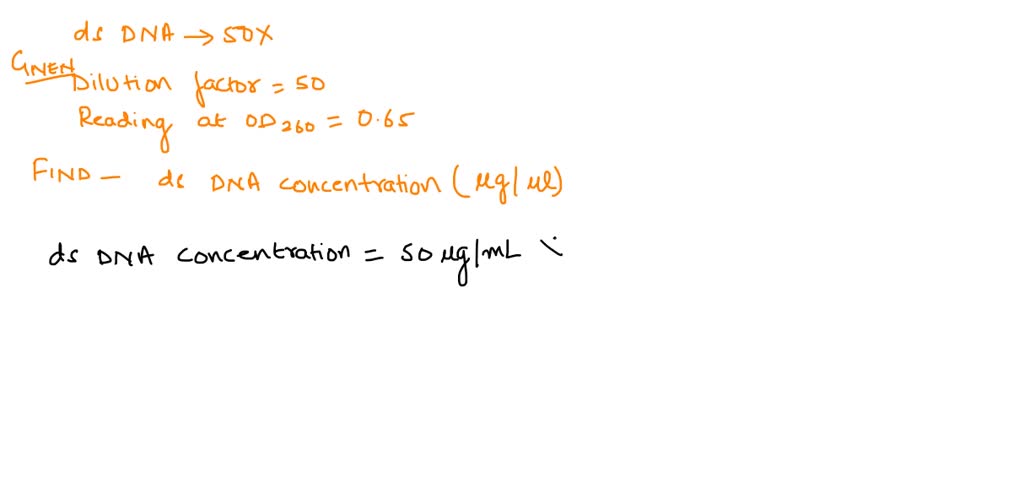 ds DNA → 50X
GIVEN
Dilution factor = 50
Reading at OD260 = 0.65
FIND - ds DNA concentration (µg/µl)
ds DNA concentration = 50 µg/mL